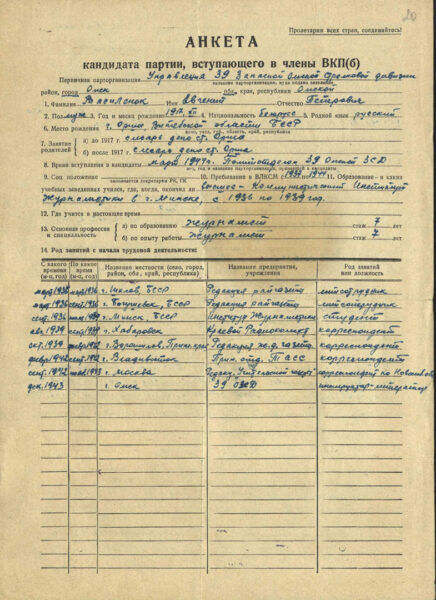 Пролетарии всех стран, соединяйтесь!
20
АНКЕТА
кандидата партии, вступающего в члены ВКП(б)
Первичная парторганизация Управления 39 Запасной Омской Стрелковой дивизии
район, город Омск обл., край, республика Омской
1. Фамилия Имя Евгений Отчество Петрович
2. Пол муж. 3. Год и месяц рождения 4. Национальность белорус 5. Родной язык русский
6. Место рождения г. Орша Витебской области БССР
село, уезд, губ., область, край, республика
7. Занятие родителей
а) до 1917 г. слесарь депо ст. Орша
б) после 1917 г. слесарь депо ст. Орша
8. Время вступления в кандидаты март 1944 г. Политотделом 39 Омской ЗСД
9. Соц. положение 10. Пребывание в ВЛКСМ 11. Образование – в каких
учебных заведениях учился, где, когда, окончил ли Высшее - Коммунистический Институт
Журналистики в г. Минске, с 1936 по 1939 год.
12. Где учится в настоящее время
13. Основная профессия и специальность
а) по образованию журналист стаж 7 лет
б) по опыту работы Журналист стаж 7 лет
14. Род занятий с начала трудовой деятельности:
С какого времени (м-ц, год) По какое время (м-ц, год) Название местности (село, город, район, обл., край, республика) Название предприятия, учреждения Род занятий или должность
1936 БССР Редакция райгазеты литсотрудник
1936 БССР Редакция райгазеты литсотрудник
сент. 1936 1939 г. Минск, БССР Институт Журналистики студент
авг. 1939 г. Хабаровск Краевой Радиокомитет корреспондент
окт. 1939 г. Ворошилов, Редакция ж.д. газеты корреспондент
1942 г. Владивосток Прим. отд. ТАСС корреспондент
сент. 1942 1943 г. Москва Редакц. Учительской газет корреспондент по
дек. 1943 г. Омск 39 ОЗСД инструктор-литератор